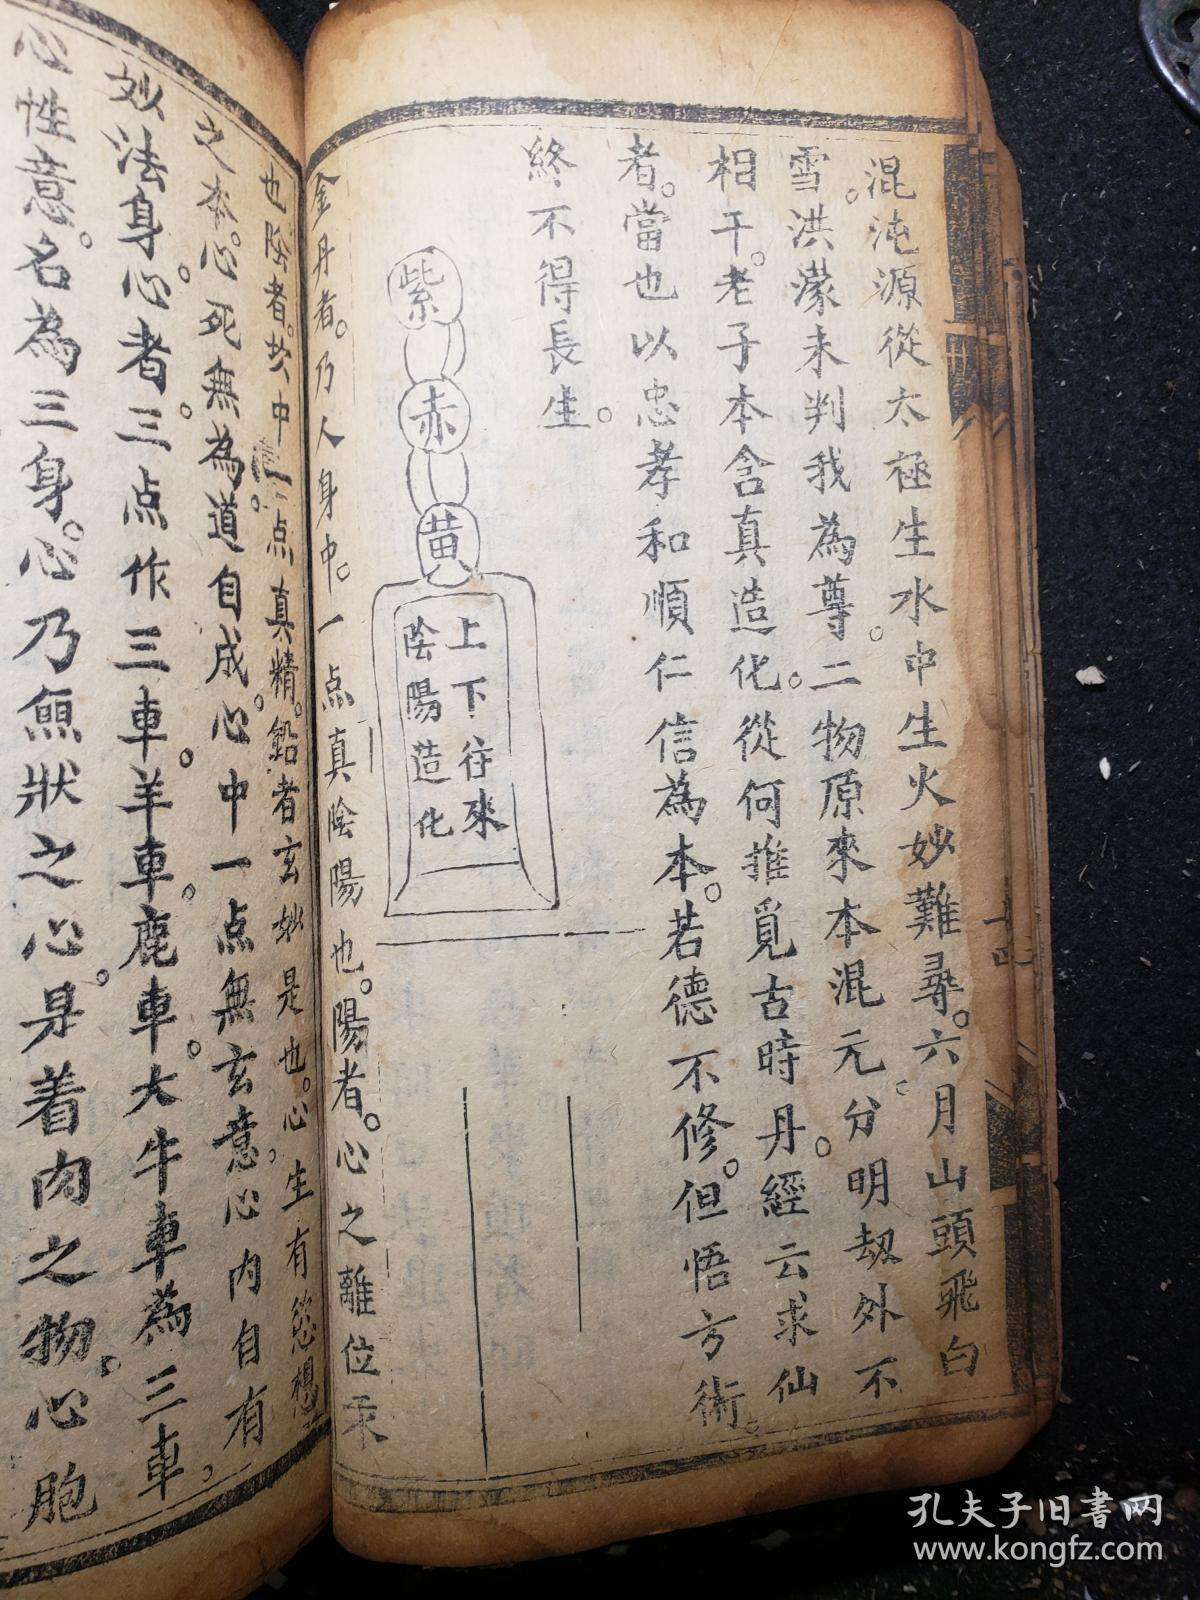 混沌源從太極生水中生火妙難尋。六月山頭飛白
雪。洪濛未判我為尊。二物原來本混元分明劫外不
相干。老子本含真造化。從何推覓古時丹。經云求仙
者。當也以忠孝和順仁信為本。若德不修。但悟方術。
終不得長生。
紫
赤
黄
上下往來
陰陽造化
金丹者。乃人身中。一点真陰陽也。陽者。心之離位汞
也陰者。坎中一点真精。鉛者玄妙是也。心生有慾想
之本。心死無為道自成。心中一点無玄意。心内自有
妙法身。心者。三点作三車。羊車。鹿車。大牛車為三車。
心性意。名為三身。心乃無狀之心。身着肉之物。心胞
十四
孔夫子旧書网
www.kongfz.com